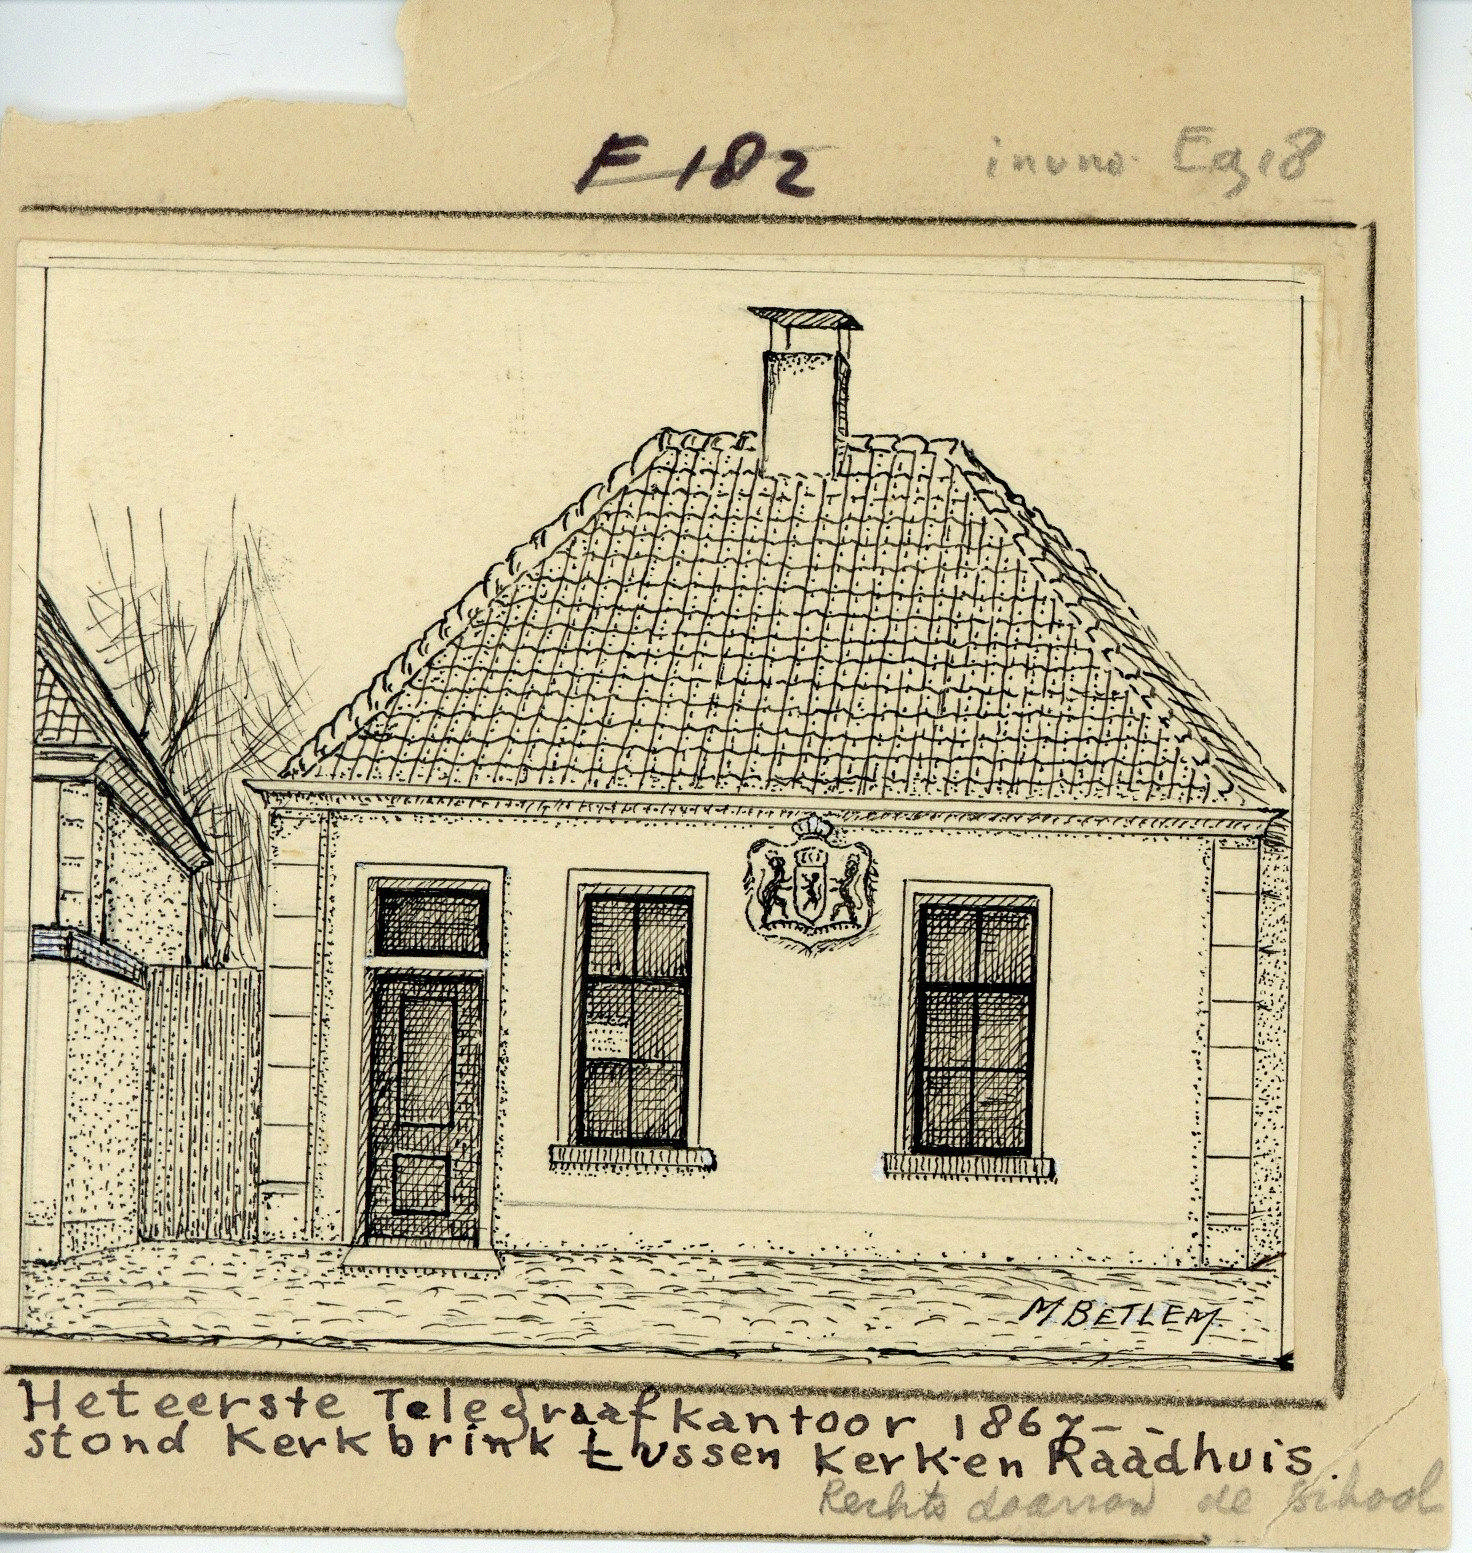 F 182
Eg 18
M BETLEM
Het eerste Telegraafkantoor 1867--
stond Kerkbrink tussen Kerk-en Raadhuis.
Rechts daarvan de school